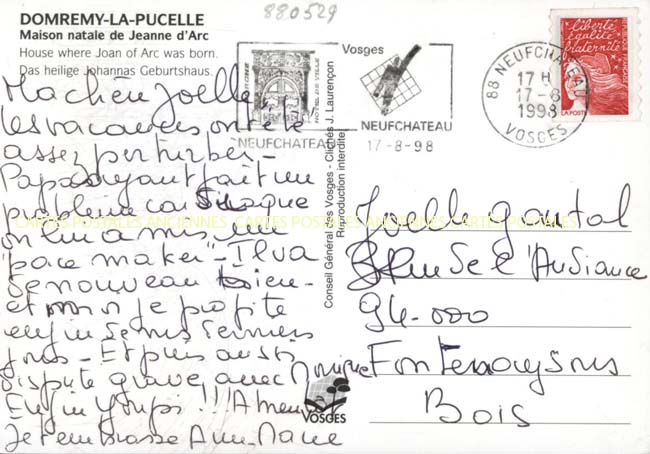 DOMREMY-LA-PUCELLE
Maison natale de Jeanne d'Arc
House where Joan of Arc was born.
Das heilige Johannas Geburtshaus.
880529
Ma chère Joelle
les vacances ont été
assez perturber -
Papa ayant fait un
problème cardiaque
on lui a mis un
pace maker - Il va
de nouveau bien -
et moi je profite
enfin de mes derniers
jours - Et puis aussi
dispute grave avec Monique
Enfin youpi !!! A
Je t'embrasse Ann-Marie
HOTEL DE VILLE
NEUFCHATEAU
Vosges
NEUFCHATEAU
17-8-98
88 NEUFCHATEAU
17 H
17-8
1998
VOSGES
liberté
égalité
fraternité
LA POSTE
Conseil Général des Vosges - Clichés J. Laurençon
Reproduction interdite
CARTES POSTALES ANCIENNES CARTES POSTALES ANCIENNES CARTES POSTALES ANCIENNES
Joelle
Rue de l'Audiance
94-000
Fontenay sous
Bois
VOSGES